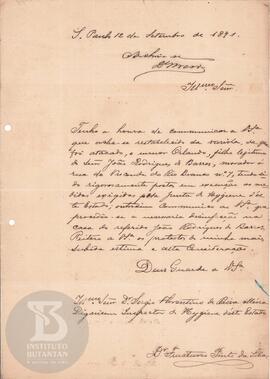 S. Paulo 12 de Setembro de 1891.
Archive-se
Illmo Snr
Tenho a honra de communicar a Vª
que acha-se restabelecido da variola de que
foi atacado, o menor Orlando, filho legitimo
do Senr João Rodrigues de Barros, morador á
rua do Visconde do Rio Branco nº 7, tendo si-
do rigorosamente postas em execução as me-
didas exigidas pela Junta de Hygiene des-
te Estado, outrosim communico a Vª que
procedeu-se a necessaria desinfecção na
casa do referido João Rodrigues de Barros.
Reitero a Vª os protestos de minha mais
subida estima e alta consideração.
Deus Guarde a Vª
Illmo Senr Dr Sergio Florentino de Paiva Meira
Dignissimo Inspector de Hygiene deste Estado
Dr
INSTITUTO
BUTANTAN